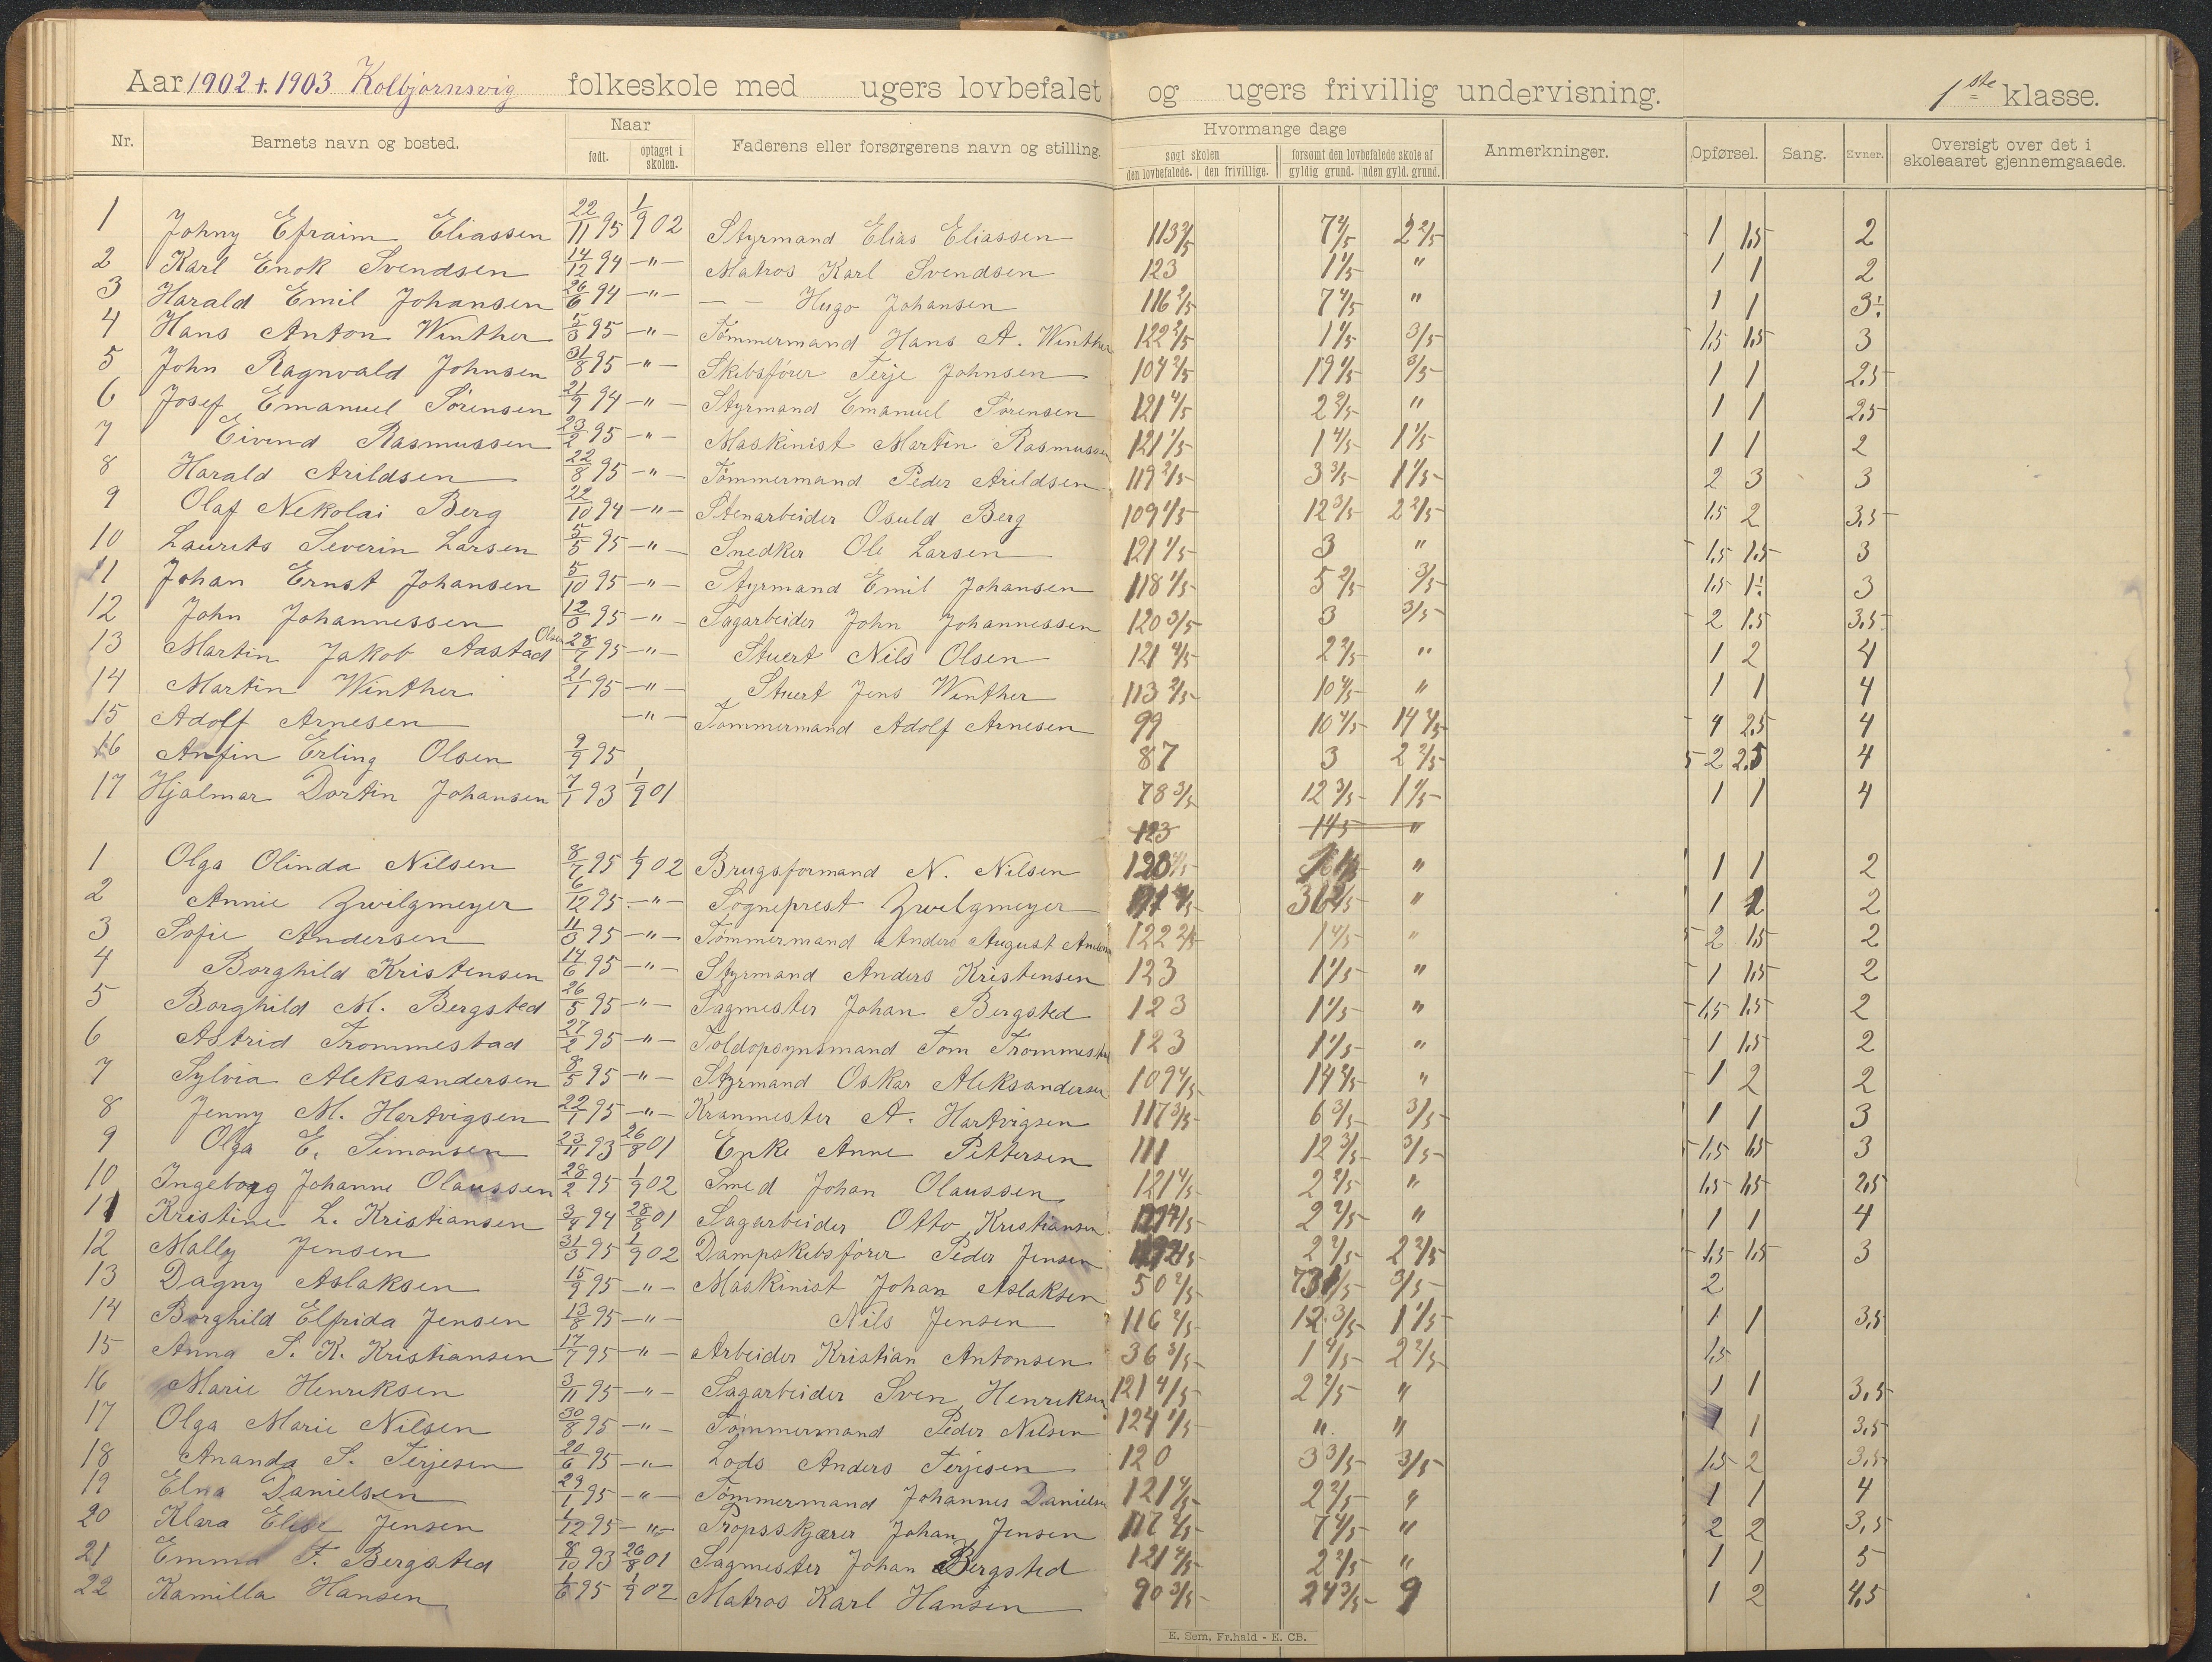 Aar 1902 t. 1903 Kolbjørnsvig folkeskole med ugers lovbefalet og ugers frivillig undervisning. 1ste klasse.
Nr. Barnets navn og bosted. Naar født. optaget i skolen. Faderens eller forsørgerens navn og stilling. Hvormange dage søgt skolen den lovbefalede. den frivillige. forsømt den lovbefalede skole af gyldig grund. uden gyld. grund. Anmerkninger. Opførsel. Sang. Evner. Oversigt over det i skoleaaret gjennemgaaede.
1 Johny Efraim Eliassen 22/11 95 1/9 02 Styrmand Elias Eliassen 113 2/5 7 4/5 2 2/5 1 1,5 2
2 Karl Enok Svendsen 14/12 94 -"- Matros Karl Svendsen 123 1 1/5 " 1 1 2
3 Harald Emil Johansen 26/6 94 -"- — — Hugo Johansen 116 2/5 7 4/5 " 1 1 3÷
4 Hans Anton Winther 5/3 95 -"- Tømmermand Hans A. Winther 122 2/5 1 1/5 3/5 1,5 1,5 3
5 John Ragnvald Johnsen 31/8 95 -"- Skibsfører Terje Johnsen 104 2/5 19 1/5 3/5 1 1 2,5
6 Josef Emanuel Sørensen 21/9 94 -"- Styrmand Emanuel Sørensen 121 4/5 2 2/5 " 1 1 2,5
7 Eivind Rasmussen 23/2 95 -"- Maskinist Martin Rasmussen 121 1/5 1 4/5 1 1/5 1 1 2
8 Harald Arildsen 22/8 95 -"- Tømmermand Peder Arildsen 119 2/5 3 3/5 1 1/5 2 3 3
9 Olaf Nekolai Berg 22/10 94 -"- Stenarbeider Osuld Berg 109 1/5 12 3/5 2 2/5 1,5 2 3,5
10 Laurits Severin Larsen 5/5 95 -"- Snedker Ole Larsen 121 1/5 3 " 1,5 1,5 3
11 Johan Ernst Johansen 5/10 95 -"- Styrmand Emil Johansen 118 1/5 5 2/5 3/5 1,5 1÷ 3
12 John Johannessen 12/8 95 -"- Sagarbeider John Johannessen 120 3/5 3 3/5 2 1,5 3,5
13 Martin Jakob Aastad Olsen 28/7 95 -"- Stuert Nils Olsen 121 4/5 2 2/5 " 1 2 4
14 Martin Winther 21/1 95 -"- Stuert Jens Winther 113 2/5 10 4/5 " 1 1 4
15 Adolf Arnesen -"- Tømmermand Adolf Arnesen 99 10 4/5 14 2/5 4 2,5 4
16 Anfin Erling Olsen 9/9 95 87 3 2 2/5 2 2,5 4
17 Hjalmar Dortin Johansen 7/1 93 1/9 01 78 3/5 12 3/5 1 1/5 1 1 4
123 "
1 Olga Olinda Nilsen 8/7 95 1/9 02 Brugsformand N. Nilsen " 1 1 2
2 Annie Zwilgmeyer 6/12 95 -"- Sogneprest Zwilgmeyer " 1 2 2
3 Sofie Andersen 11/3 95 -"- Tømmermand Anders August Andersen 122 2/5 1 4/5 " 2 1,5 2
4 Borghild Kristensen 14/6 95 -"- Styrmand Anders Kristensen 123 1 1/5 " 1 1,5 2
5 Borghild M. Bergsted 26/5 95 -"- Sagmester Johan Bergsted 123 1 1/5 " 1,5 1,5 2
6 Astrid Trommestad 27/2 95 -"- Toldopsynsmand Tom Trommestad 123 1 1/5 " 1 1,5 2
7 Sylvia Aleksandersen 8/5 95 -"- Styrmand Oskar Aleksandersen 109 4/5 14 2/5 " 1 2 2
8 Jenny M. Hartvigsen 22/1 95 -"- Kranmester A. Hartvigsen 117 3/5 6 3/5 3/5 1 1 3
9 Olga E. Simonsen 23/11 93 26/8 01 Enke Anne Pettersen 111 12 3/5 3/5 1,5 1,5 3
10 Ingeborg Johanne Olaussen 28/2 95 1/9 02 Smed Johan Olaussen 121 4/5 2 2/5 " 1,5 1,5 2,5
11 Kristine L. Kristiansen 3/9 94 28/8 01 Sagarbeider Otto Kristiansen 2 2/5 " 1 1 4
12 Mally Jensen 31/3 95 1/9 02 Dampskibsfører Peder Jensen 2 2/5 2 2/5 1,5 1,5 3
13 Dagny Aslaksen 15/9 95 -"- Maskinist Johan Aslaksen 50 2/5 73 1/5 3/5 2
14 Borghild Elfrida Jensen 13/8 95 -"- Nils Jensen 116 2/5 12 3/5 1 1/5 1 1 3,5
15 Anna S. K. Kristiansen 17/7 95 -"- Arbeider Kristian Antonsen 36 3/5 1 4/5 2 2/5 1,5
16 Marie Henriksen 3/11 95 -"- Sagarbeider Sven Henriksen 121 4/5 2 2/5 " 1 1 3,5
17 Olga Marie Nilsen 30/8 95 -"- Tømmermand Peder Nilsen 124 1/5 " " 1 1 3,5
18 Ananda S. Terjesen 20/6 95 -"- Lods Anders Terjesen 120 3 3/5 3/5 1,5 2 3,5
19 Elna Danielsen 29/1 95 -"- Tømmermand Johannes Danielsen 121 4/5 2 2/5 " 1 1 4
20 Klara Elise Jensen 1/12 95 -"- Propsskjærer Johan Jensen 117 2/5 7 4/5 " 2 2 3,5
21 Emma F. Bergsted 8/10 93 26/8 01 Sagmester Johan Bergsted 121 4/5 2 2/5 " 1 1 5
22 Kamilla Hansen 1/6 95 1/9 02 Matros Karl Hansen 90 3/5 24 3/5 9 1 2 4,5
E. Sem, Fr.hald - E. CB.